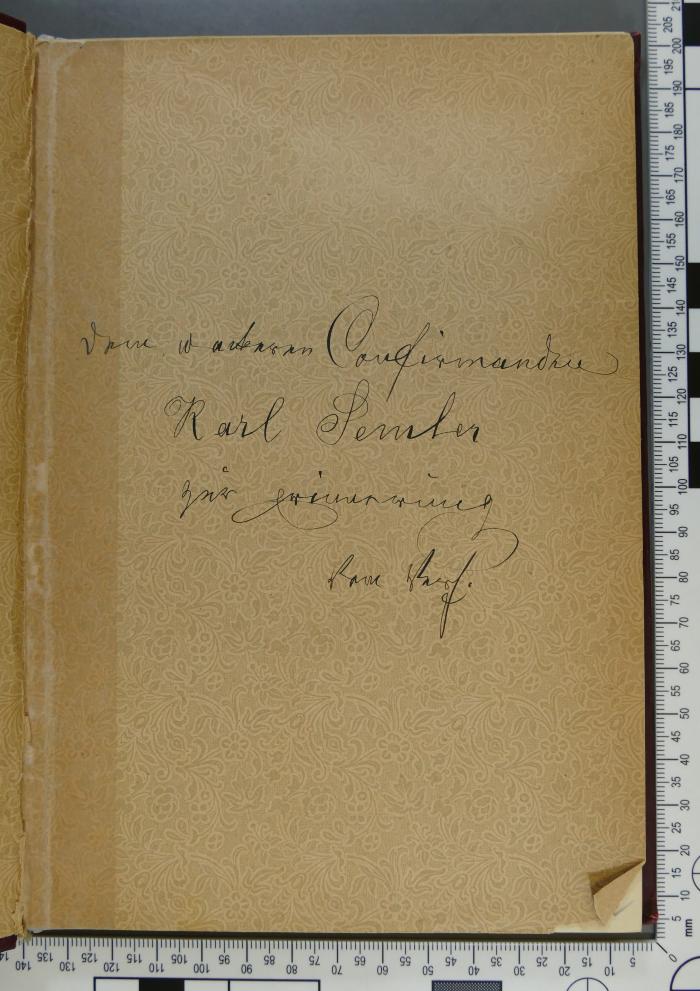 Dem wackeren Confirmanden
Karl Semler
zur Erinnerung
Vom Verf.
205
200
195
190
185
180
175
170
165
160
155
150
145
140
135
130
125
120
115
110
105
100
95
90
85
80
75
70
65
60
55
50
45
40
35
30
25
20
15
10
5
mm
0
140 135 130 125 120 115 110 105 100 95 90 85 80 75 70 65 60 55 50 45 40 35 30 25 20 15 10 5